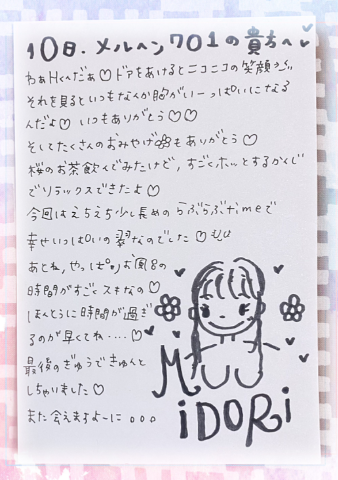 10日.メルヘン701の貴方へ♥
わぁHくんだぁ♡ドアをあけるとニコニコの笑顔
それを見るといつもなんか胸がいーっぱいになる
んだよ♡ いつもありがとう♡♡
そしてたくさんのおみやげもありがとう♡
桜のお茶飲んでみたけど,すごくホッとするかんじ
でリラックスできたよ♡
今回はえちえち少し長めのらぶらぶtimeで
幸せいっぱいの翠なのでした♡
あとね,やっぱりお風呂の
時間がすごくスキなの♡
ほんとうに時間が過ぎ
るのが早くてね....♡
最後のぎゅうできゅんと
しちゃいました♡
また会えますよーに 。。。
MiDORi